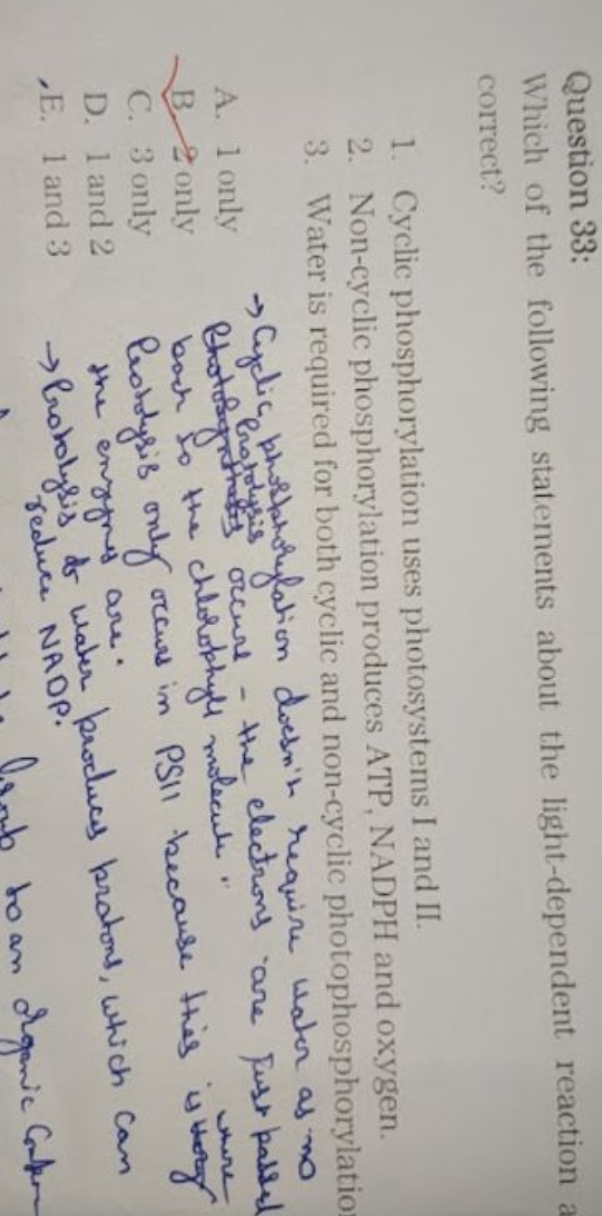 Question 33:
Which of the following statements about the light-dependent reaction a
correct?
1. Cyclic phosphorylation uses photosystems I and II.
2. Non-cyclic phosphorylation produces ATP, NADPH and oxygen.
3. Water is required for both cyclic and non-cyclic photophosphorylation
A. 1 only
B. 2 only
C. 3 only
D. 1 and 2
E. 1 and 3
→ Cyclic phosphorylation doesn't require water as no
Protolysis
occurs - the electrons are just passed
back to the chlorophyll molecule.
Protolysis only occurs in PSII because this is where
the enzymes are.
→ Protolysis of water produces protons, which can
reduce NADP.
to an organic